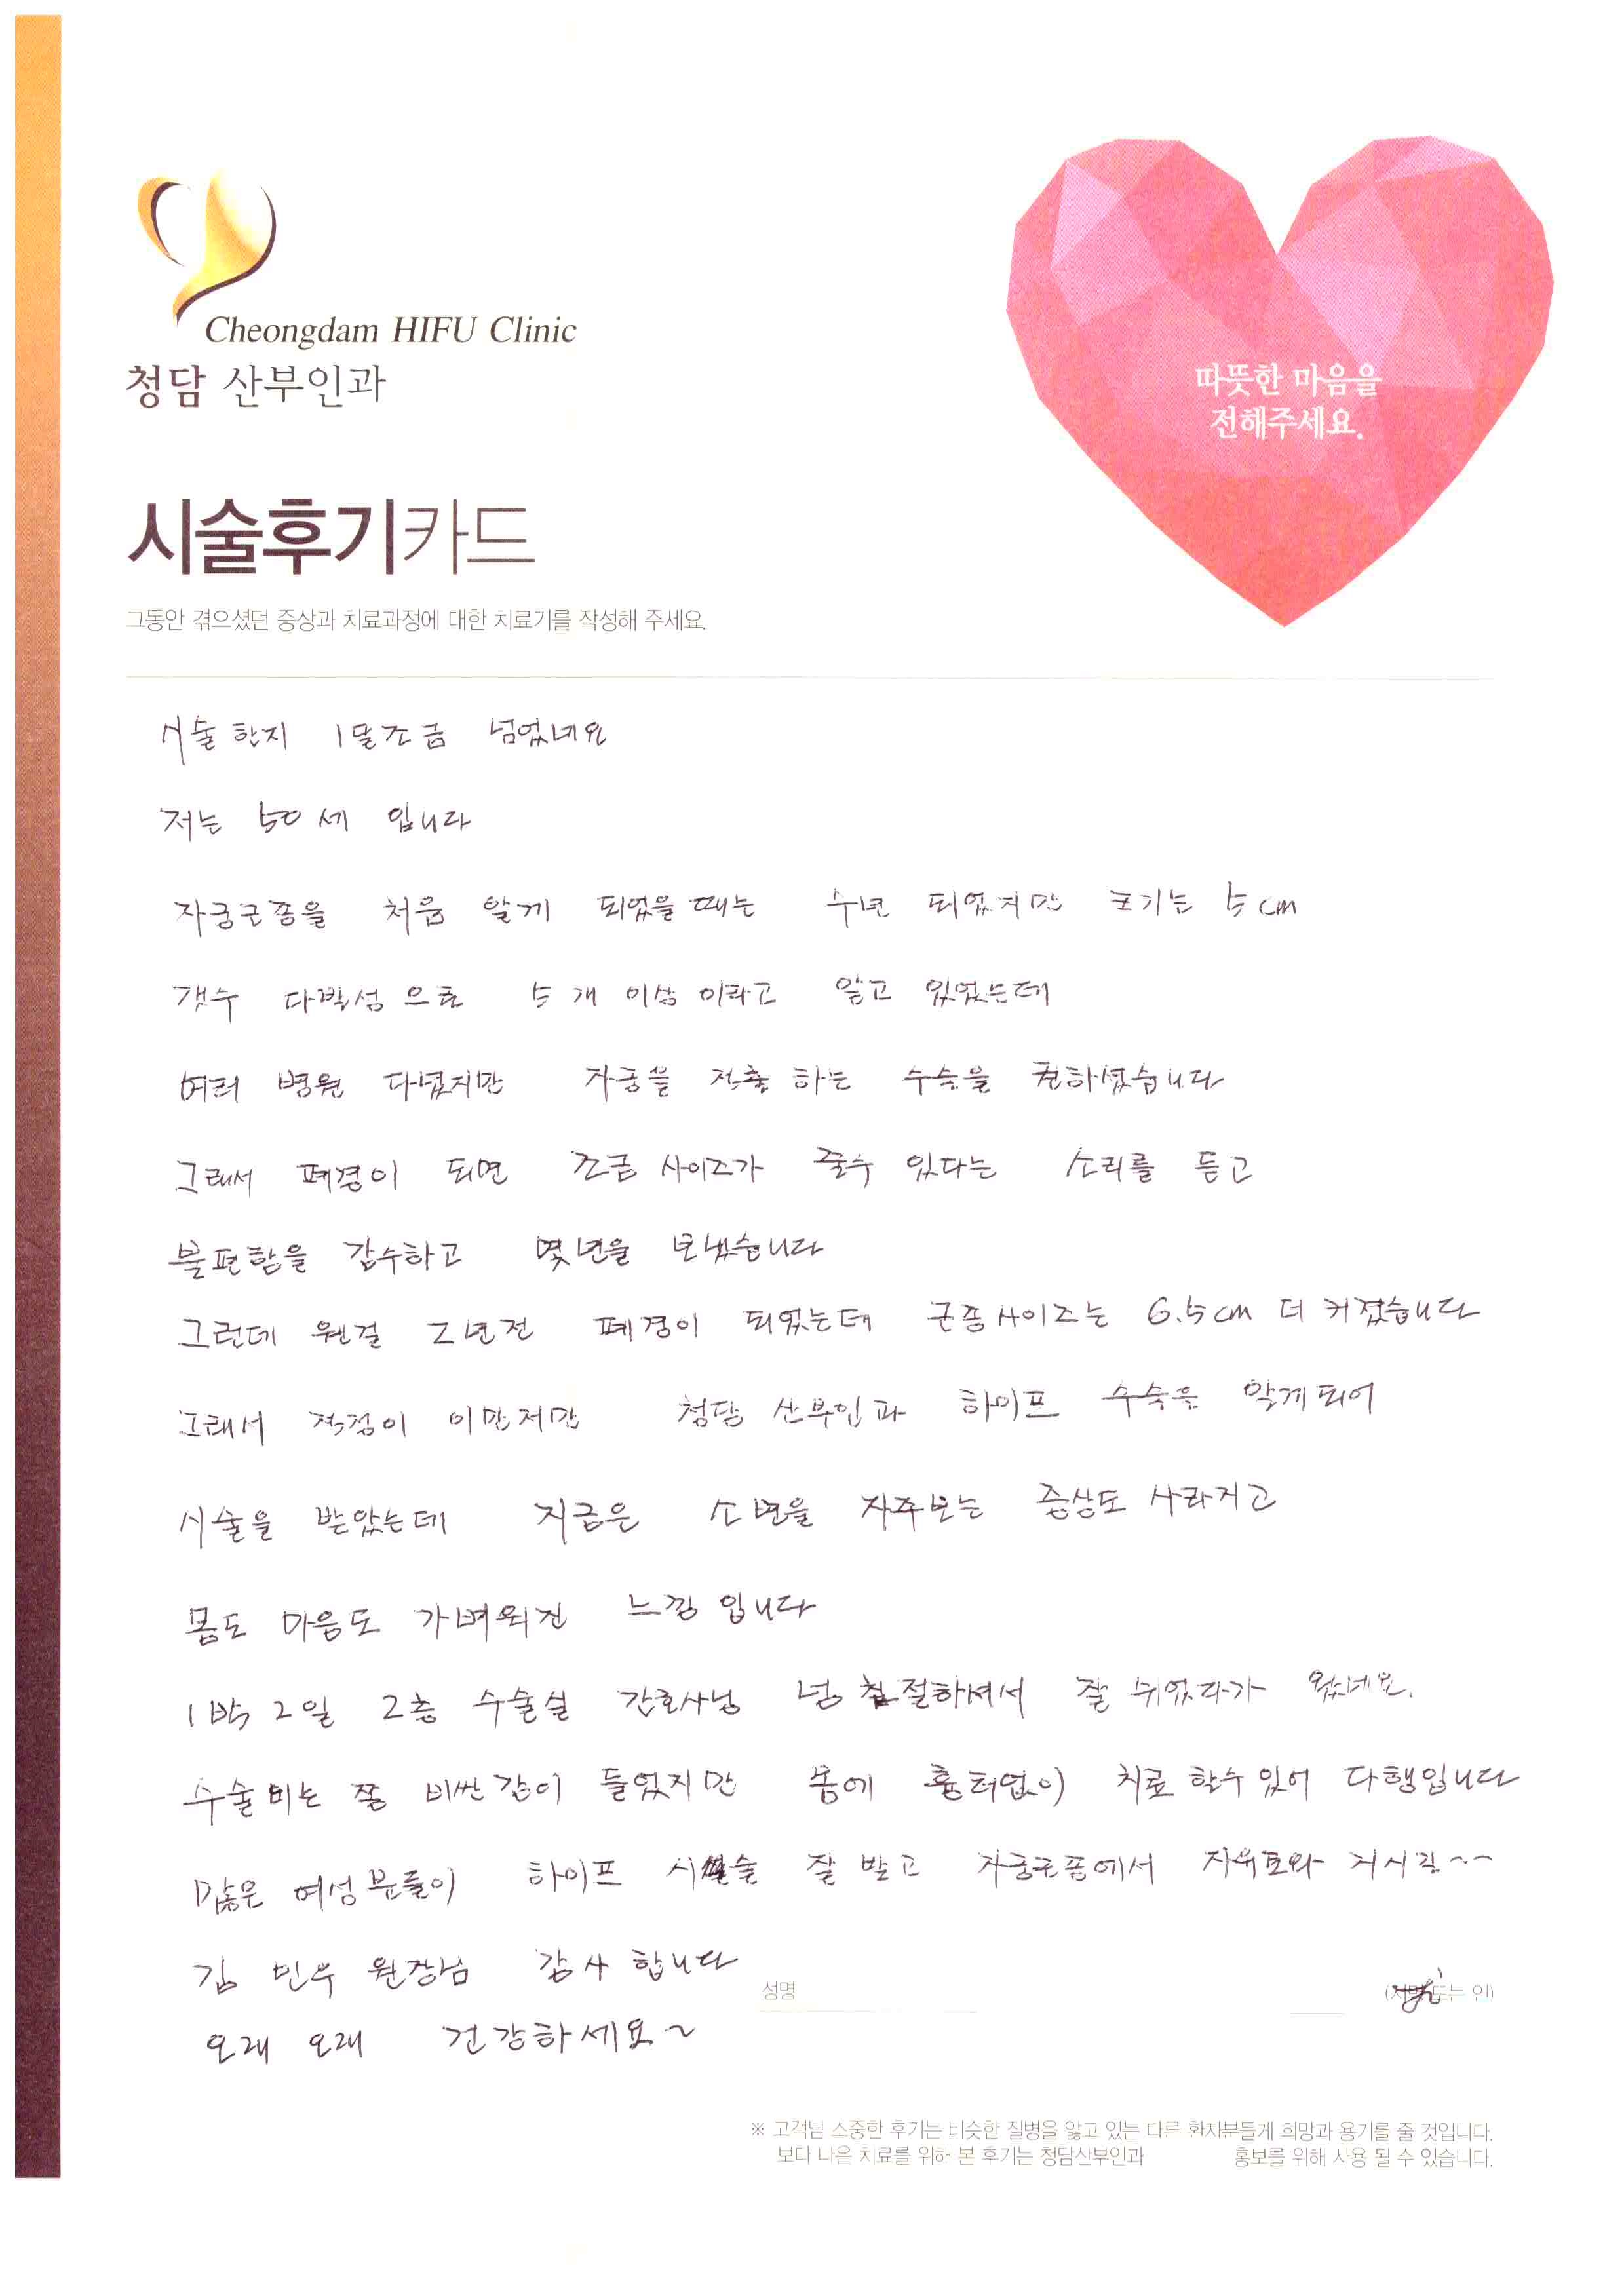 Cheongdam HIFU Clinic
청담 산부인과
따뜻한 마음을
전해주세요.
시술후기카드
그동안 겪으셨던 증상과 치료과정에 대한 치료기를 작성해 주세요.
시술한지 1달조금 넘었네요
저는 50세 입니다
자궁근종을 처음 알게 되었을때는 수년 되었지만 크기는 5cm
갯수 다발성으로 5개 이상이라고 알고 있었는데
여러 병원 다녔지만 자궁을 적출하는 수술을 권하셨습니다
그래서 폐경이 되면 조금 사이즈가 줄수 있다는 소리를 듣고
불편함을 감수하고 몇년을 보냈습니다
그런데 웬걸 2년전 폐경이 되었는데 근종사이즈는 6.5cm 더 커졌습니다
그래서 걱정이 이만저만 청담 산부인과 하이프 수술을 알게되어
시술을 받았는데 지금은 소변을 자주보는 증상도 사라지고
몸도 마음도 가벼워진 느낌입니다
1박2일 2층 수술실 간호사님 넘 친절하셔서 잘 쉬었다가 왔네요.
수술비는 쫌 비싼감이 들었지만 몸에 흉터없이 치료할수있어 다행입니다
많은 여성분들이 하이프 시술 잘 받고 자궁근종에서 자유로와 지시길~~
김민우 원장님 감사합니다
성명 (서명 또는 인)
오래 오래 건강하세요~
※ 고객님 소중한 후기는 비슷한 질병을 앓고 있는 다른 환자부들게 희망과 용기를 줄 것입니다.
보다 나은 치료를 위해 본 후기는 청담산부인과 홍보를 위해 사용 될 수 있습니다.